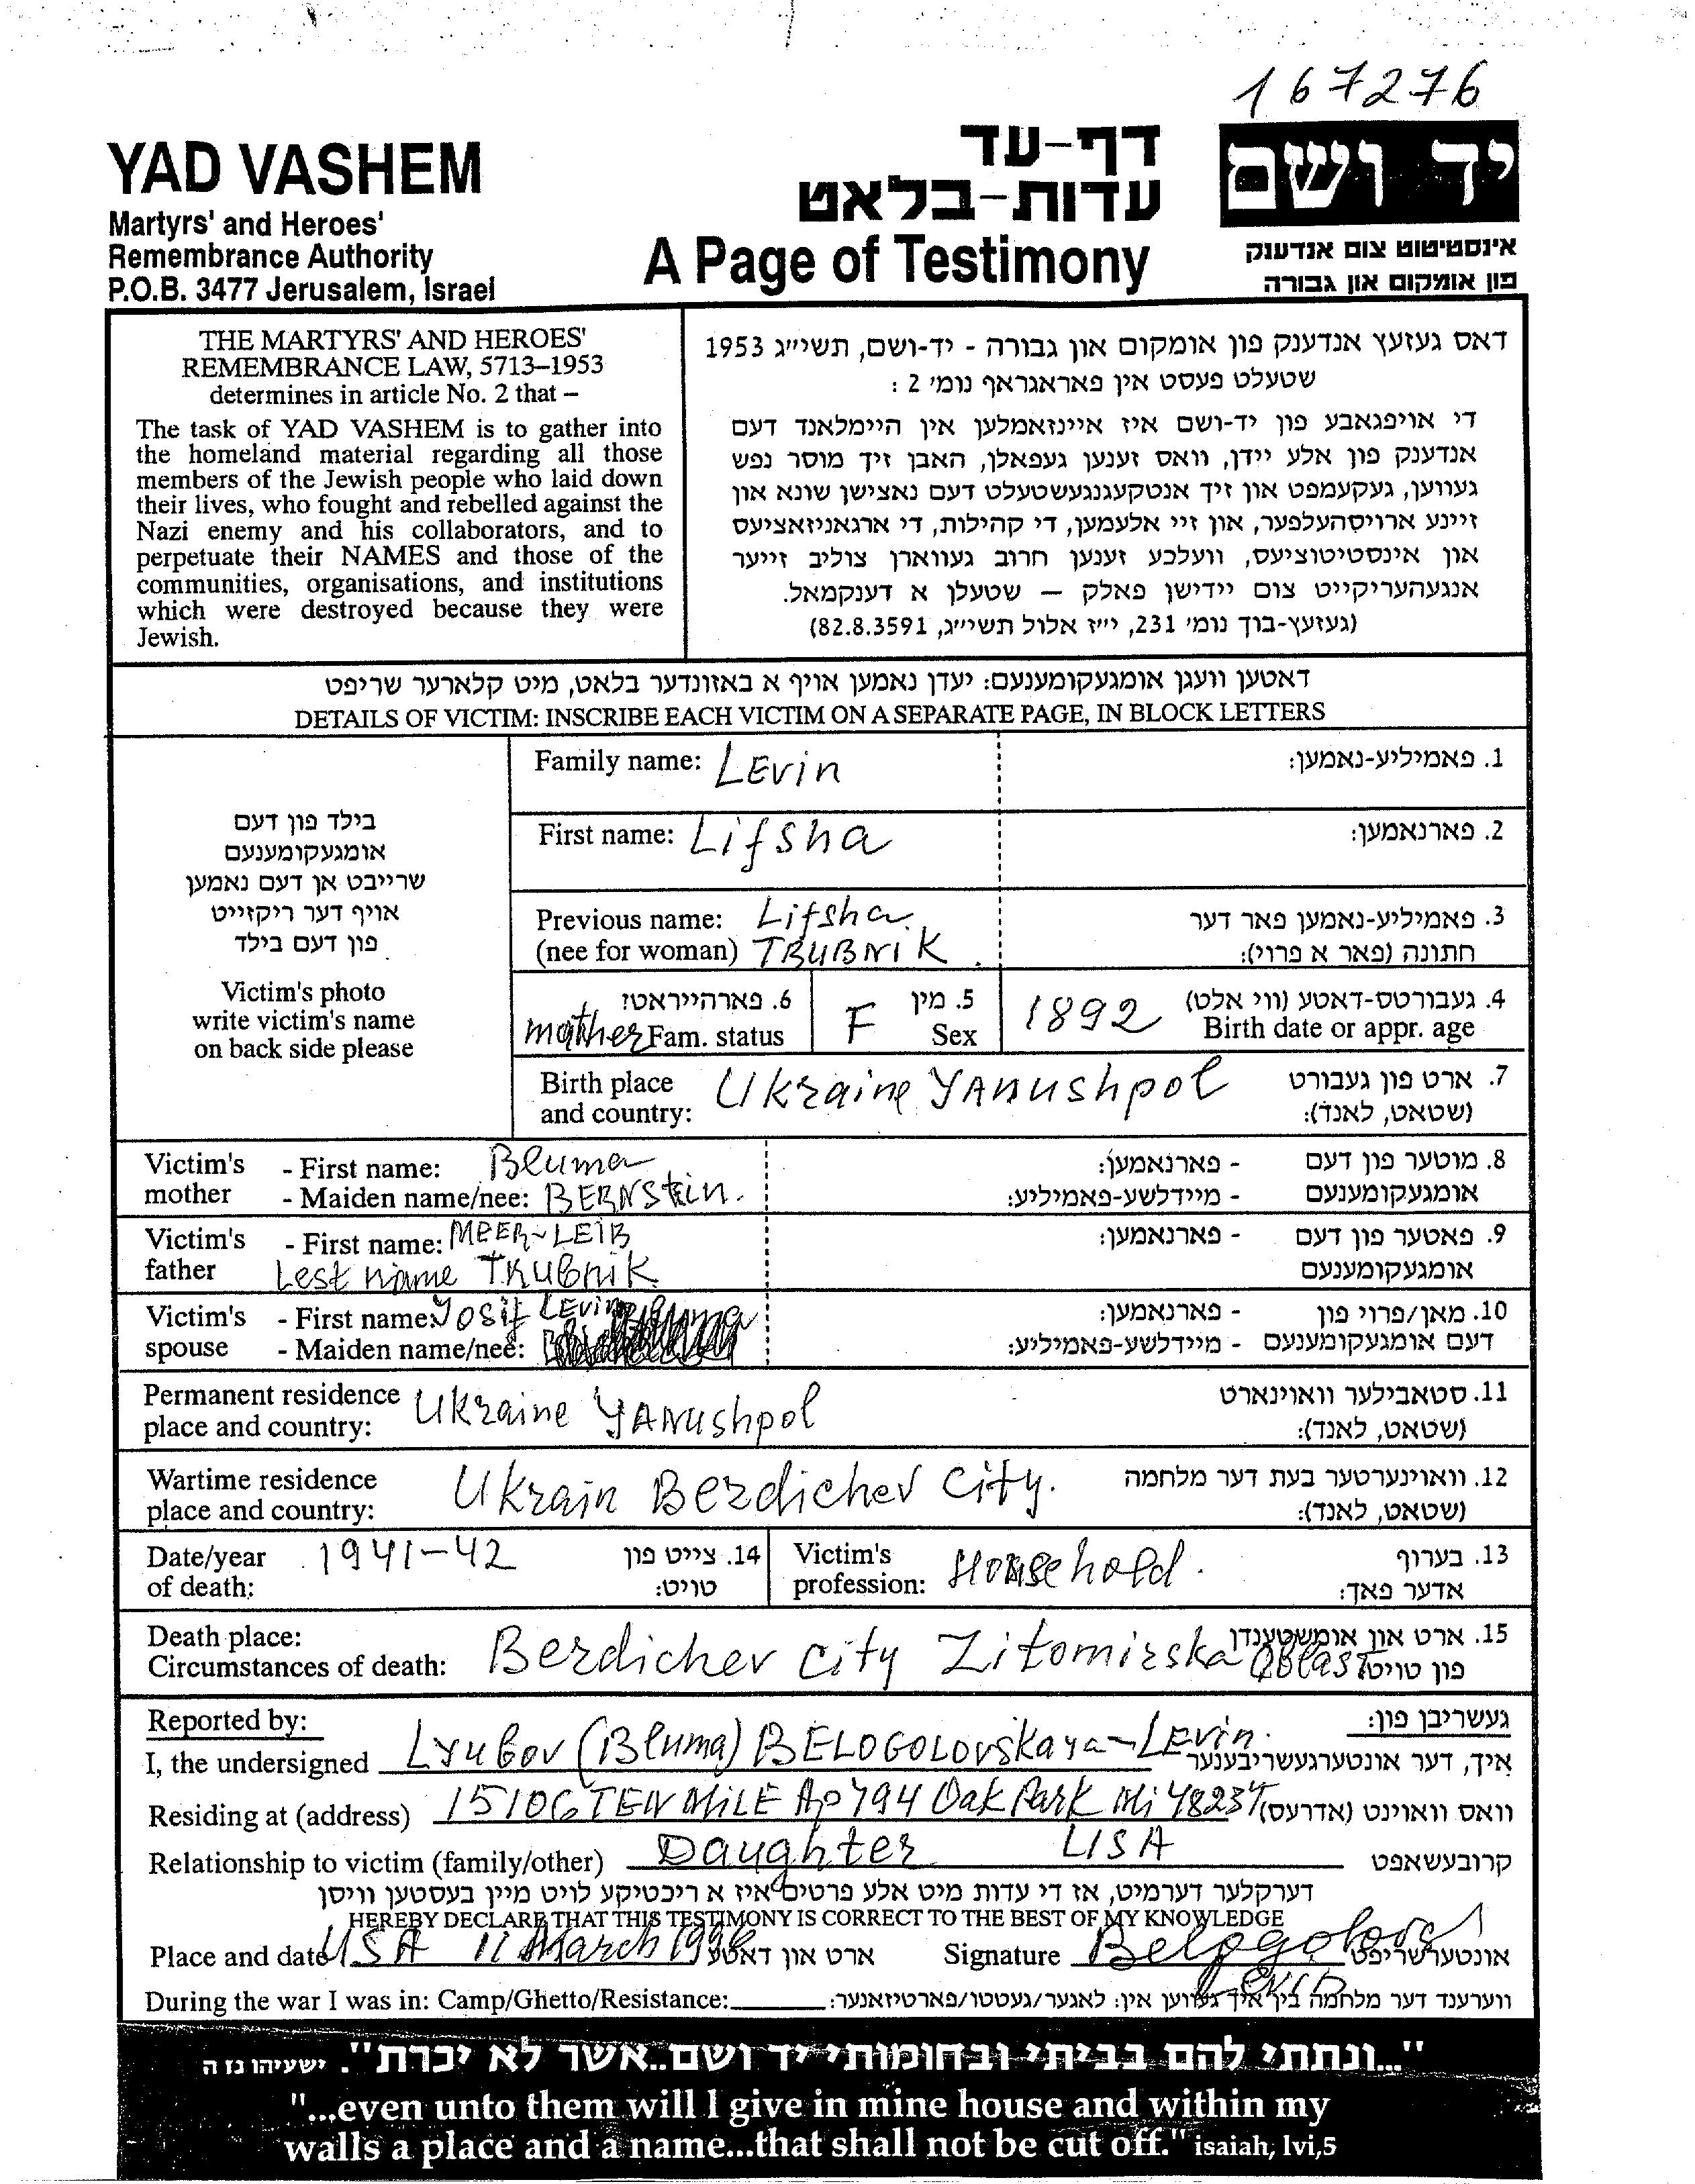 167276
YAD VASHEM
Martyrs' and Heroes'
Remembrance Authority
P.O.B. 3477 Jerusalem, Israel
דף-עד
עדות-בלאט
A Page of Testimony
יד ושם
אינסטיטוט צום אנדענק
פון אומקום און גבורה
THE MARTYRS' AND HEROES'
REMEMBRANCE LAW, 5713–1953
determines in article No. 2 that –
The task of YAD VASHEM is to gather into
the homeland material regarding all those
members of the Jewish people who laid down
their lives, who fought and rebelled against the
Nazi enemy and his collaborators, and to
perpetuate their NAMES and those of the
communities, organisations, and institutions
which were destroyed because they were
Jewish.
דאס געזעץ אנדענק פון אומקום און גבורה - יד-ושם, תשי״ג 1953
שטעלט פעסט אין פאראגראף נומ׳ 2 :
די אויפגאבע פון יד-ושם איז איינזאמלען אין היימלאנד דעם
אנדענק פון אלע יידן, וואס זענען געפאלן, האבן זיך מוסר נפש
געווען, געקעמפט און זיך אנטקעגנגעשטעלט דעם נאצישן שונא און
זיינע ארויסהעלפער, און זיי אלעמען, די קהילות, די ארגאניזאציעס
און אינסטיטוציעס, וועלכע זענען חרוב געווארן צוליב זייער
אנגעהעריקייט צום יידישן פאלק — שטעלן א דענקמאל.
(געזעץ-בוך נומ׳ 231, י״ז אלול תשי״ג, 82.8.3591)
דאטען וועגן אומגעקומענעם: יעדן נאמען אויף א באזונדער בלאט, מיט קלארער שריפט
DETAILS OF VICTIM: INSCRIBE EACH VICTIM ON A SEPARATE PAGE, IN BLOCK LETTERS
בילד פון דעם
אומגעקומענעם
שרייבט אן דעם נאמען
אויף דער ריקזייט
פון דעם בילד
Victim's photo
write victim's name
on back side please
Family name: LEvin 1. פאמיליע-נאמען:
First name: Lifsha 2. פארנאמען:
Previous name: Lifsha 3. פאמיליע-נאמען פאר דער
(nee for woman) TRUBNIK. חתונה (פאר א פרוי):
6. פארהייראט? 5. מין 4. געבורטס-דאטע (ווי אלט)
mother Fam. status F Sex 1892 Birth date or appr. age
Birth place Ukraine YANUshpol 7. ארט פון געבורט
and country: (שטאט, לאנד):
Victim's - First name: Bluma 8. מוטער פון דעם - פארנאמען:
mother - Maiden name/nee: BERNStein. אומגעקומענעם - מיידלשע-פאמיליע:
Victim's - First name: MEER-LEIB 9. פאטער פון דעם - פארנאמען:
father Lest name TRUBNIK אומגעקומענעם
Victim's - First name: Yosif LEVin 10. מאן/פרוי פון - פארנאמען:
spouse - Maiden name/nee: דעם אומגעקומענעם - מיידלשע-פאמיליע:
Permanent residence Ukraine YANUshpol 11. סטאבילער וואוינארט
place and country: (שטאט, לאנד):
Wartime residence Ukrain Berdichev City. 12. וואוינערטער בעת דער מלחמה
place and country: (שטאט, לאנד):
Date/year 1941-42 14. צייט פון Victim's Household. 13. בערוף
of death: טויט: profession: אדער פאך:
Death place: 15. ארט און אומשטענדן
Circumstances of death: Berdichev city Zitomirska Oblast פון טויט
Reported by: געשריבן פון:
I, the undersigned Lyubov (Bluma) BELOGOLOVskaya-LEvin. איך, דער אונטערגעשריבענער
Residing at (address) 15106 TEN MILE Ap 794 Oak Park Mi 48237 וואס וואוינט (אדרעס)
Relationship to victim (family/other) Daughter USA קרובעשאפט
דערקלער דערמיט, אז די עדות מיט אלע פרטים איז א ריכטיקע לויט מיין בעסטען וויסן
HEREBY DECLARE THAT THIS TESTIMONY IS CORRECT TO THE BEST OF MY KNOWLEDGE
Place and date USA 11 March 1996 ארט און דאטע Signature Belogolovs אונטערשריפט
Levin
During the war I was in: Camp/Ghetto/Resistance: ווערענד דער מלחמה בין איך געווען אין: לאגער/געטטו/פארטיזאנער:
"...ונתתי להם בביתי ובחומותי יד ושם..אשר לא יכרת". ישעיהו נז ה
"...even unto them will I give in mine house and within my
walls a place and a name...that shall not be cut off." isaiah, lvi,5